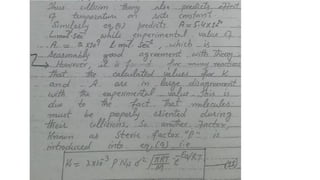 Thus collision theory also predicts effect
of temperature on rate constant.
Similarly eq.(9) predicts A = 5.4x10
L mol⁻¹ sec⁻¹ while experimental value of
A = 2x10⁹ L mol⁻¹ sec⁻¹, which is
reasonably good agreement with Theory
However, it is for many reactions
that the calculated values for K
and A are in large disagreement
with the experimental value. This is
due to the fact that molecules
must be properly oriented during
their collisions. So another factor,
known as Steric factor "P" is
introduced into eq.(9) i.e
K = 2x10⁻³ P N₀ σ² √(πRT/M) e^(-Ea/RT)